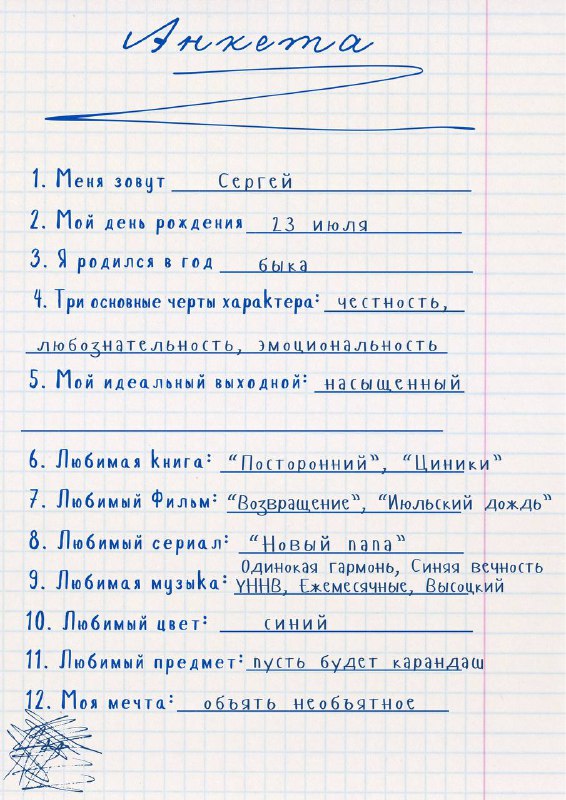 Анкета
1. Меня зовут Сергей
2. Мой день рождения 23 июля
3. Я родился в год быка
4. Три основные черты характера: честность,
любознательность, эмоциональность
5. Мой идеальный выходной: насыщенный
6. Любимая книга: “Посторонний”, “Циники”
7. Любимый Фильм: “Возвращение”, “Июльский дождь”
8. Любимый сериал: “Новый папа”
Одинокая гармонь, Синяя вечность
9. Любимая музыка: УННВ, Ежемесячные, Высоцкий
10. Любимый цвет: синий
11. Любимый предмет: пусть будет карандаш
12. Моя мечта: объять необъятное